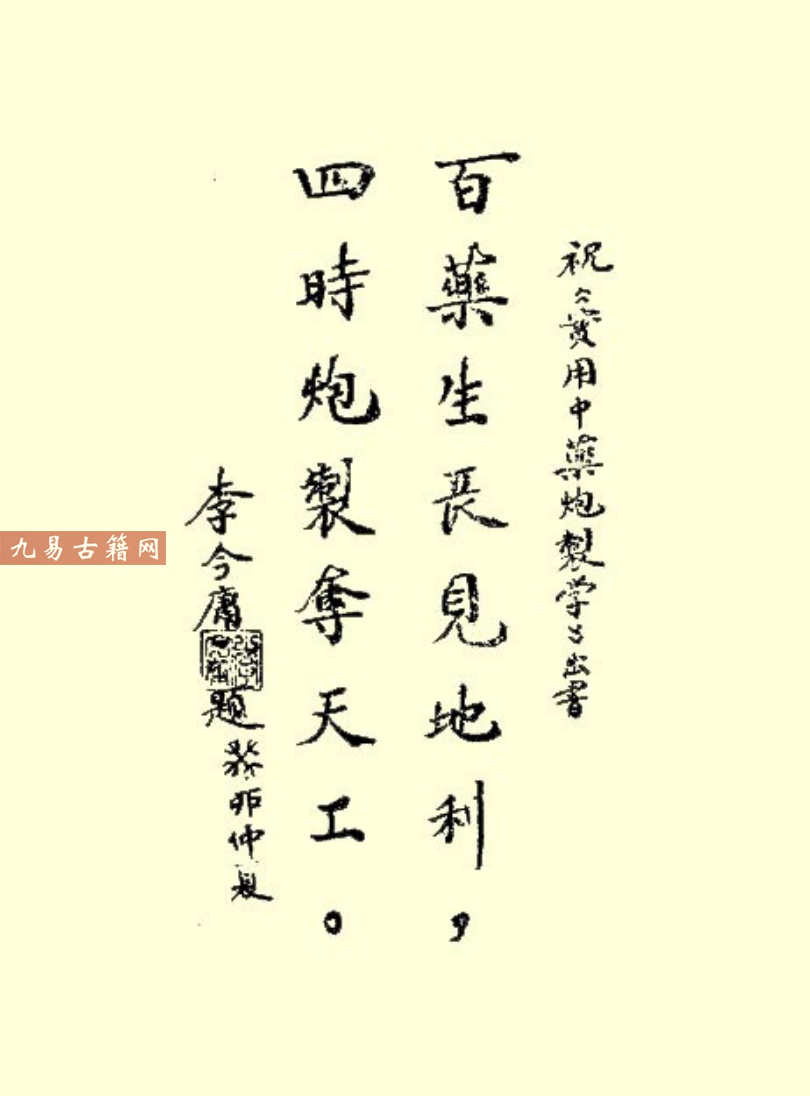 祝《实用中藥炮製学》出書
百藥生長見地利，
四時炮製奪天工。
李今庸題
癸卯仲夏
九易古籍网